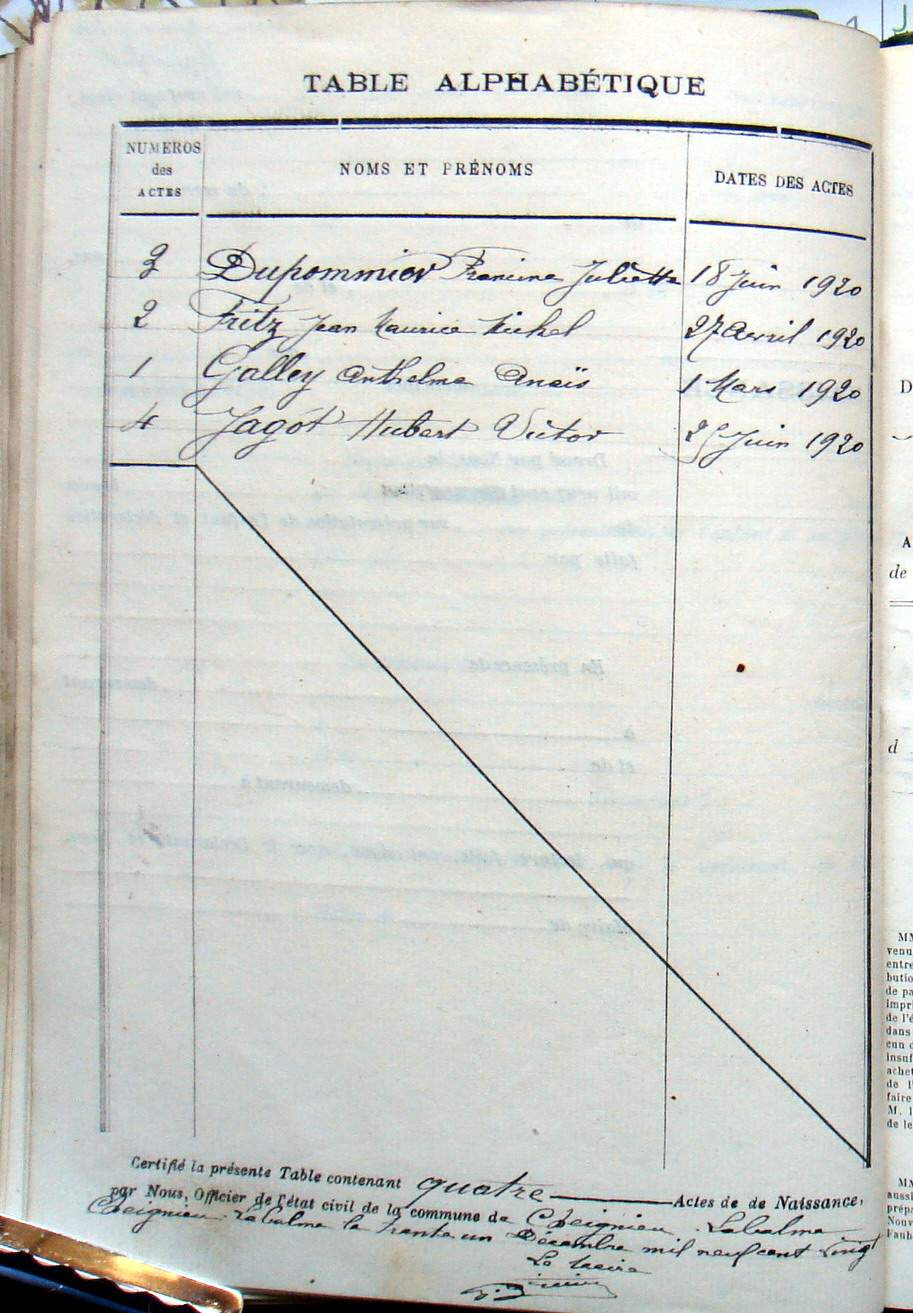 TABLE ALPHABÉTIQUE
NUMEROS des ACTES
NOMS ET PRÉNOMS
DATES DES ACTES
3 Dupommier Francine Juliette 18 Juin 1920
2 Fritz Jean Maurice Michel 27 Avril 1920
1 Galley Anthelme Anaïs 1 Mars 1920
4 Jagot Hubert Victor 25 Juin 1920
Certifié la présente Table contenant quatre Actes de de Naissance,
par Nous, Officier de l'état civil de la commune de Cheignieu-Labalme
Cheignieu-Labalme le trente un Décembre mil neuf cent vingt
Le Maire